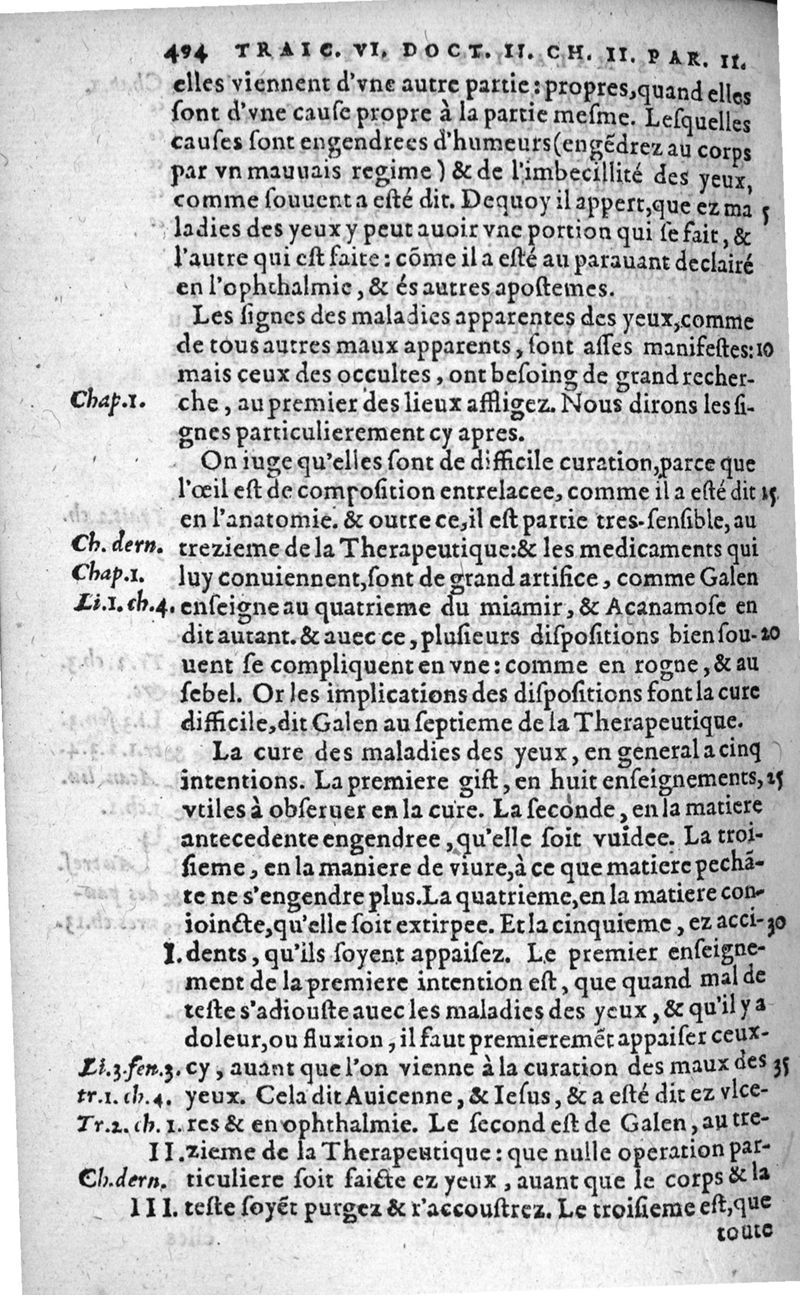 494 TRAIC. VI. DOCT. II. CH. II. PAR. II.
elles viennent d'vne autre partie : propres, quand elles
ſont d'vne cauſe propre à la partie meſme. Leſquelles
cauſes ſont engendrees d'humeurs (engẽdrez au corps
par vn mauuais regime) & de l'imbecillité des yeux,
comme ſouuent a eſté dit. Dequoy il appert, que ez ma 5
ladies des yeux y peut auoir vne portion qui ſe fait, &
l'autre qui eſt faite : cõme il a eſté au parauant declairé
en l'ophthalmie, & és autres apoſtemes.
Les ſignes des maladies apparentes des yeux, comme
de tous autres maux apparents, ſont aſſes manifeſtes: 10
mais ceux des occultes, ont beſoing de grand recher-
Chap.1. che, au premier des lieux affligez. Nous dirons les ſi-
gnes particulierement cy apres.
On iuge qu'elles ſont de difficile curation, parce que
l'œil eſt de compoſition entrelacee, comme il a eſté dit 15
en l'anatomie. & outre ce, il eſt partie tres-ſenſible, au
Ch. dern. trezieme de la Therapeutique: & les medicaments qui
Chap.1. luy conuiennent, ſont de grand artifice, comme Galen
Li.1.ch.4. enſeigne au quatrieme du miamir, & Acanamoſe en
dit autant. & auec ce, pluſieurs diſpoſitions bien ſou- 20
uent ſe compliquent en vne : comme en rogne, & au
ſebel. Or les implications des diſpoſitions font la cure
difficile, dit Galen au ſeptieme de la Therapeutique.
La cure des maladies des yeux, en general a cinq
intentions. La premiere giſt, en huit enſeignements, 25
vtiles à obſeruer en la cure. La ſeconde, en la matiere
antecedente engendree, qu'elle ſoit vuidee. La troi-
ſieme, en la maniere de viure, à ce que matiere pechã-
te ne s'engendre plus. La quatrieme, en la matiere con-
ioincte, qu'elle ſoit extirpee. Et la cinquieme, ez acci- 30
I. dents, qu'ils ſoyent appaiſez. Le premier enſeigne-
ment de la premiere intention eſt, que quand mal de
teſte s'adiouſte auec les maladies des yeux, & qu'il y a
doleur, ou fluxion, il faut premieremẽt appaiſer ceux-
Li.3.fen.3. cy, auant que l'on vienne à la curation des maux des 35
tr.1. ch.4. yeux. Cela dit Auicenne, & Ieſus, & a eſté dit ez vlce-
Tr.2. ch. 1. res & en ophthalmie. Le ſecond eſt de Galen, au tre-
II. zieme de la Therapeutique : que nulle operation par-
Ch.dern. ticuliere ſoit faicte ez yeux, auant que le corps & la
III. teſte ſoyẽt purgez & r'accouſtrez. Le troiſieme eſt, que
toute